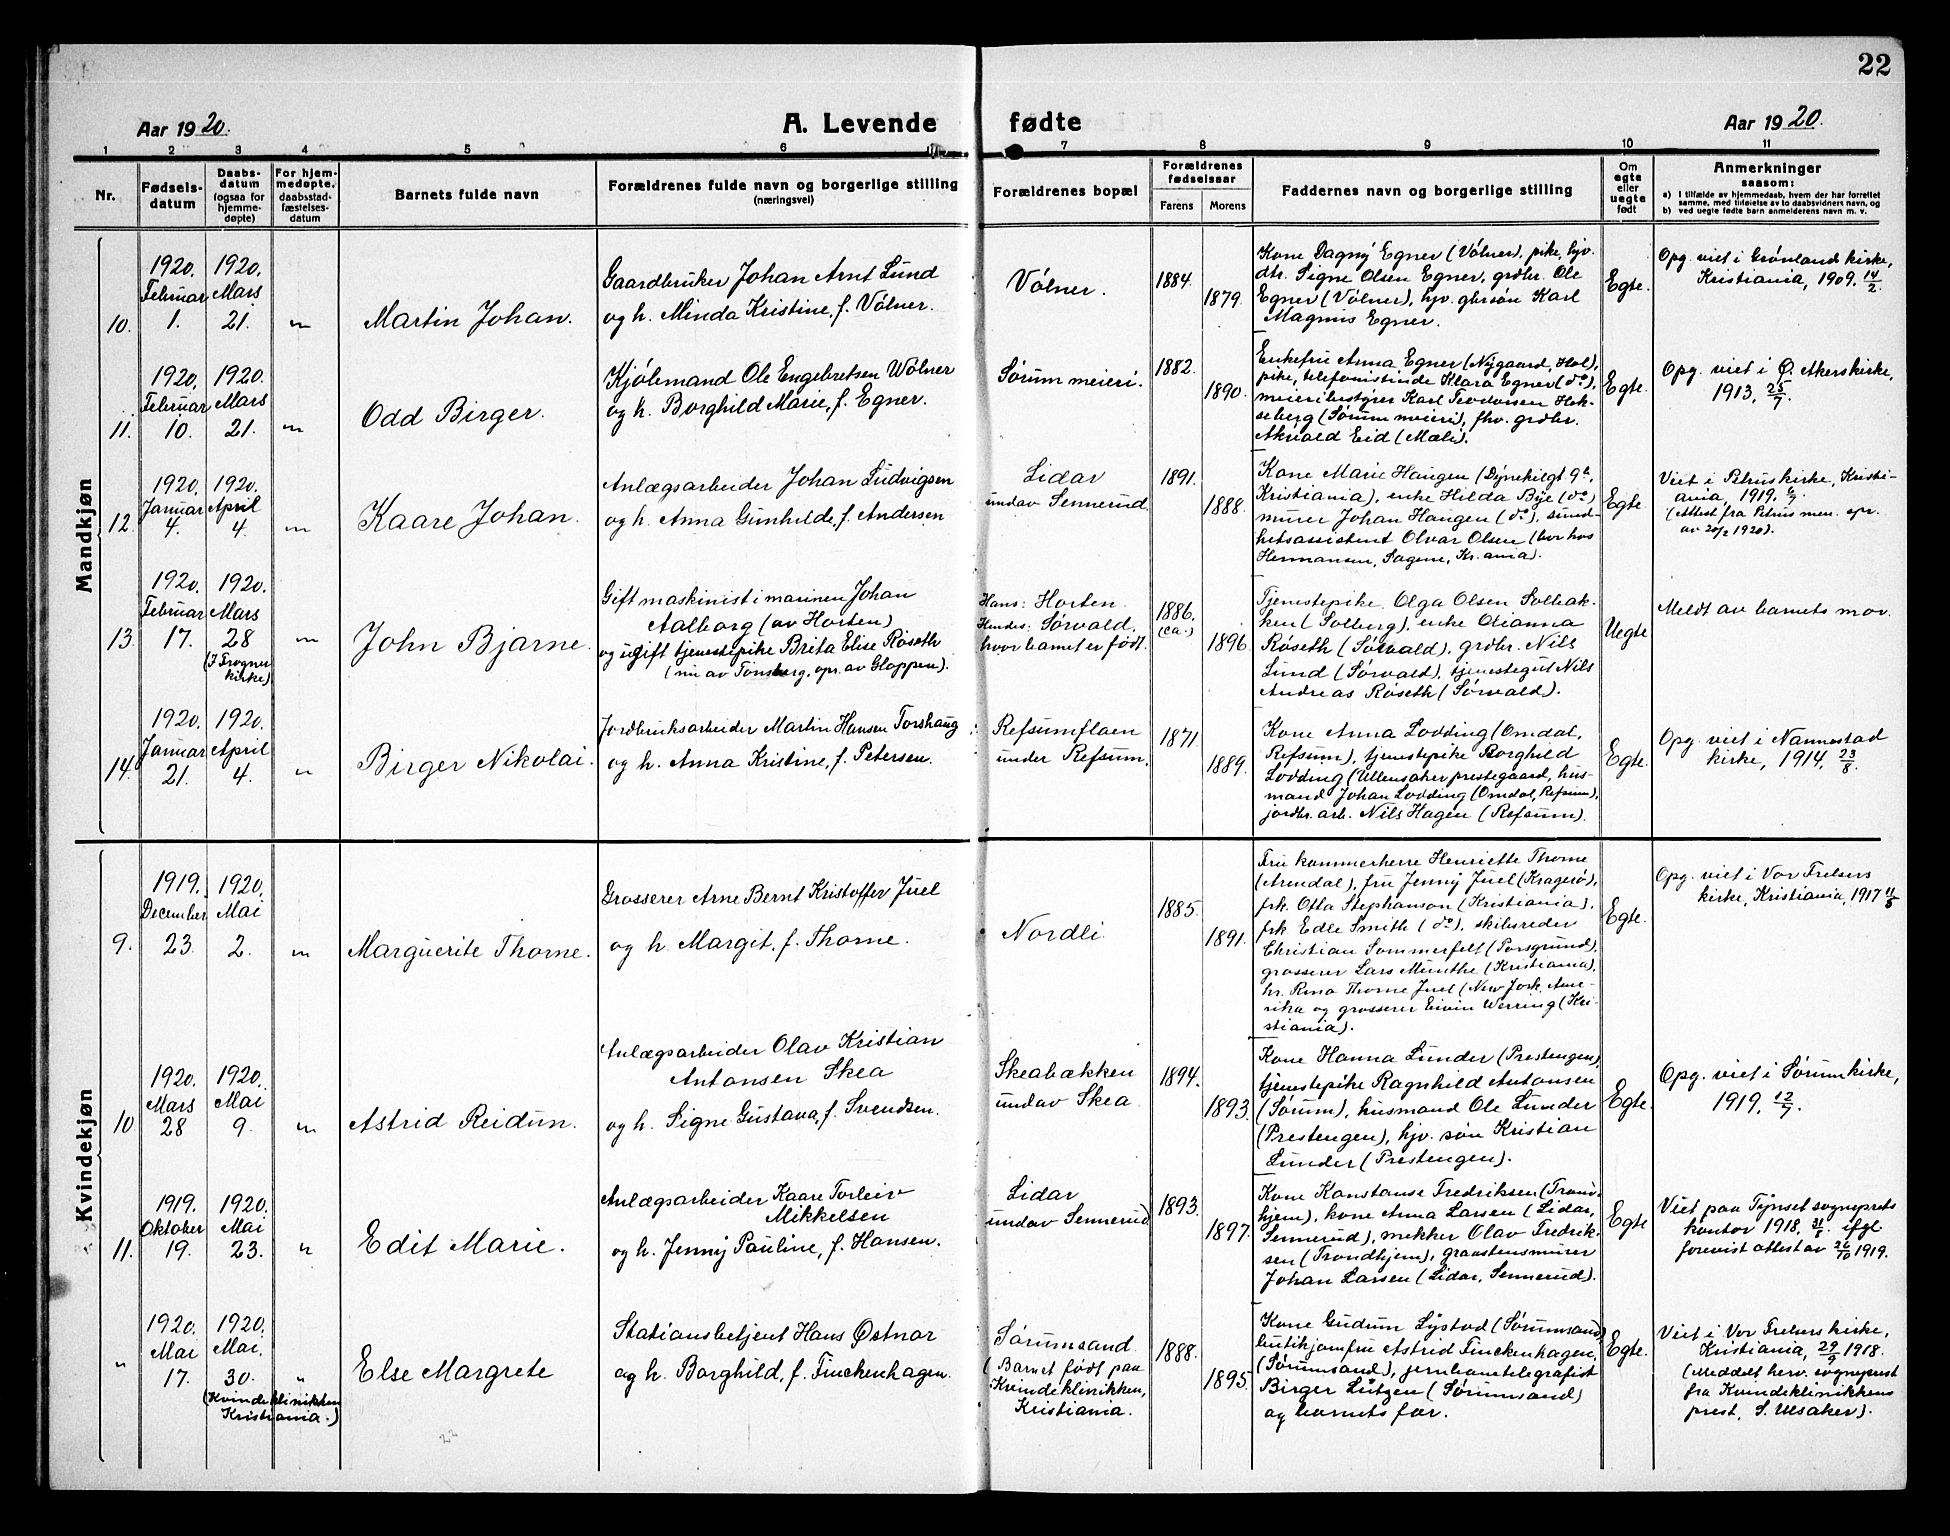 22
Aar 1920.
A. Levende
fødte
Aar 1920.
1 2 3 4 5 6 7 8 9 10 11
Nr.
Fødsels-
datum
Daabs-
datum
(ogsaa for
hjemme-
døpte)
For hjem-
medøpte,
daabsstad-
fæstelses-
datum
Barnets fulde navn
Forældrenes fulde navn og borgerlige stilling
(næringsvei)
Forældrenes bopæl
Forældrenes
fødselsaar
Farens
Morens
Faddernes navn og borgerlige stilling
Om
egte
eller
uegte
født
Anmerkninger
saasom:
a) I tilfælde av hjemmedaab, hvem der har forrettet
samme, med tilføielse av to daabsvidners navn, og
b) ved uegte fødte barn anmelderens navn m. v.
Mandkjøn
10.
1920.
Februar
1.
1920.
Mars
21.
"
Martin Johan.
Gaardbruker Johan Arnt Lund
og h. Minda Kristine, f. Vølner.
Vølner.
1884.
1879.
Kone Dagny Egner (Vølner), pike, hjv.
dtr. Signe Olsen Egner, grdbr. Ole
Egner (Vølner), hjv. gbrsøn Karl
Magnus Egner.
Egte.
Opg. viet i Grønland kirke,
Kristiania, 1909, 14/2.
11.
1920.
Februar
10.
1920.
Mars
21.
"
Odd Birger.
Kjølemand Ole Engebretsen Wølner
og h. Borghild Marie, f. Egner.
Sørum meieri.
1882.
1890.
Enkefru Anna Egner (Nygaard, Hol),
pike, telefonistinde Klara Egner (do),
meieribestyrer Karl Teodorsen Hok-
seberg (Sørum meieri), fhv. grdbr.
Akivald Eid (Mæli).
Egte.
Opg. viet i Ø. Akers kirke,
1913, 25/7.
12.
1920.
Januar
4.
1920.
April
4.
"
Kaare Johan.
Anlægsarbeider Johan Ludvigsen
og h. Anna Gunhilde, f. Andersen
Lidar
undav Sennerud.
1891.
1888.
Kone Marie Haugen (Dynekilgt 9a,
Kristiania), enke Hilda Bye (do)
murer Johan Haugen (do), sund-
hetsassistent Olvar Olsen (bor hos
Hermansen, Sagene, Kr.ania).
Egte.
Viet i Petrus kirke, Kristi-
ania, 1919,
(Attest fra Petrus men. spr.
av 20/2 1920).
13.
1920.
Februar
17.
1920.
Mars
28
(I Frogner
kirke)
"
John Bjarne.
Gift maskinist i marinen Johan
Aalborg (av Horten)
og ugift tjenestepike Brita Elise Røseth
(nu av Tønsberg, opr. av Gloppen).
Hans: Horten.
Hendes: Sørvald,
hvor barnet er født.
1886.
(ca.)
1896.
Tjenestepike Olga Olsen Solbak-
ken (Solberg), enke Oleanna
Røseth (Sørvald), grdbr. Nils
Lund (Sørvald), tjenestegut Nils
Andreas Røseth (Sørvald).
Uegte.
Meldt av barnets mor.
14.
1920.
Januar
21.
1920.
April
4.
"
Birger Nikolai.
Jordbruksarbeider Martin Hansen Torshaug
og h. Anna Kristine, f. Petersen.
Refsumflaen
under Refsum.
1871.
1889.
Kone Anna Lodding (Omdal,
Refsum), tjenestepike Borghild
Lodding (Ullensaker prestegaard, hus-
mand Johan Lodding (Omdal, Refsum),
jordbr. arb. Nils Hagen (Refsum).
Egte.
Opg. viet i Nannestad
kirke, 1914, 23/8.
Kvindekjøn
9.
1919.
December
23.
1920.
Mai
2.
"
Marguerite Thorne.
Grosserer Arne Bernt Kristoffer Juel
og h. Margit, f. Thorne.
Nordli.
1885.
1891.
Fru kammerherre Henriette Thorne
(Arendal), fru Jenny Juel (Kragerø),
frk. Otta Stephanson (Kristiania),
frk. Edle Smith (do), skibsreder
Christian Sommerfelt (Porsgrund),
grosserer Lars Munthe (Kristiania),
hr. Thorne Juel (New Jork, Ame-
rika og grosserer Eivin Werring (Kri-
stiania).
Egte.
Opg. viet i Vor Frelsers
kirke, Kristiania, 1917
10
1920.
Mars
28
1920.
Mai
9.
"
Astrid Reidun.
Anlægsarbeider Olav Kristian
Antonsen Skea
og h. Signe Gustava, f. Svendsen.
Skeabakken
undav Skea.
1894.
1893.
Kone Hanna Lunder (Prestengen),
tjenestepike Ragnhild Antonsen
(Sørum), husmand Ole Lunder
(Prestengen), hjv. søn Kristian
Lunder (Prestengen).
Egte.
Opg. viet i Sørum kirke,
1919, 12/7.
11.
1919.
Oktober
19.
1920.
Mai
23.
"
Edit Marie.
Anlægsarbeider Kaare Torleiv
Mikkelsen
og h. Jenny Pauline, f. Hansen.
Lidar
undav Sennerud
1893.
1897.
Kone Konstanse Fredriksen (Trond-
hjem), kone Anna Larsen (Lidar,
Sennerud), mekker Olav Fredrik-
sen (Trondhjem), graastensmurer
Johan Larsen (Lidar, Sennerud).
Egte
Viet paa Tynset sogneprests
kontor 1918, 31/8. ifgl.
forevist attest av 26/10 1919.
"
1920.
Mai
17.
1920.
Mai.
30.
(Kvindeklinikken
Kristiania.)
"
Else Margrete
Stationsbetjent Hans Østnor
og h. Borghild, f. Finckenhagen.
Sørumsand
(Barnet født paa
Kvindeklinikken,
Kristiania.
1888.
1895.
Kone Gudrun Lystad (Sørumsand)
butikjomfru Astrid Finckenhagen,
(Sørumsand), jernbanetelegrafist
Birger Lützen (Sørumsand)
og barnets far.
Egte.
Viet i Vor Frelsers kirke,
Kristiania, 29/9 1918.
(Meddelt herv. sogneprest
fra Kvindeklinikkens
prest, S. Ulsaker).
22